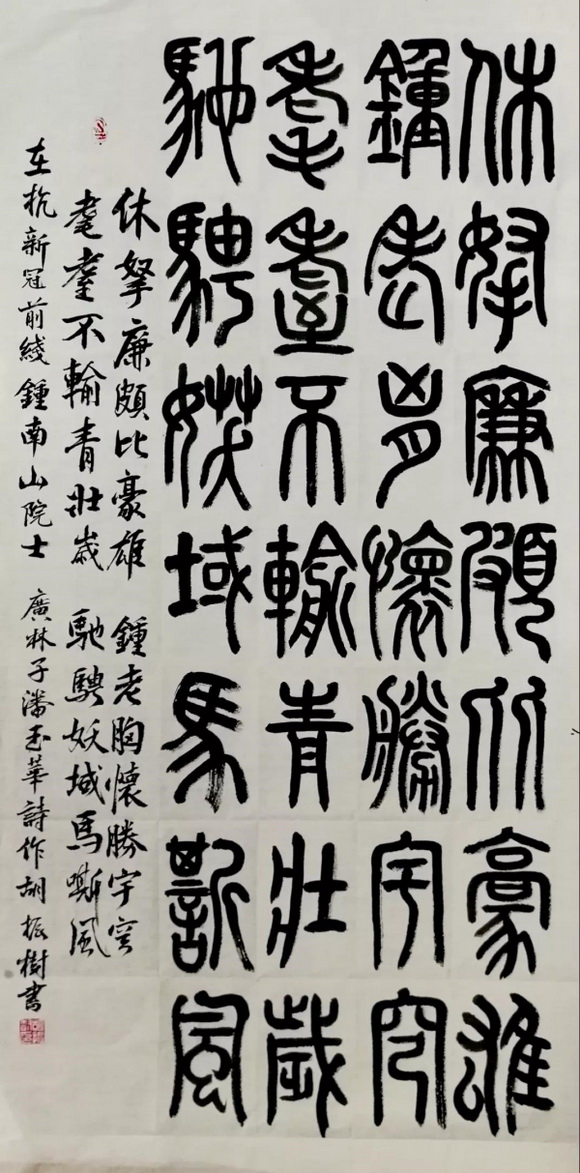 休拏廉頗比豪雄
鍾老胸懷勝宇穹
耄耋不輸青壯歲
馳騁妖域馬嘶風
休拏廉頗比豪雄 鍾老胸懷勝宇穹
耄耋不輸青壯歲 馳騁妖域馬嘶風
在抗新冠前綫鍾南山院士 廣林子潘玉華詩作胡振樹書